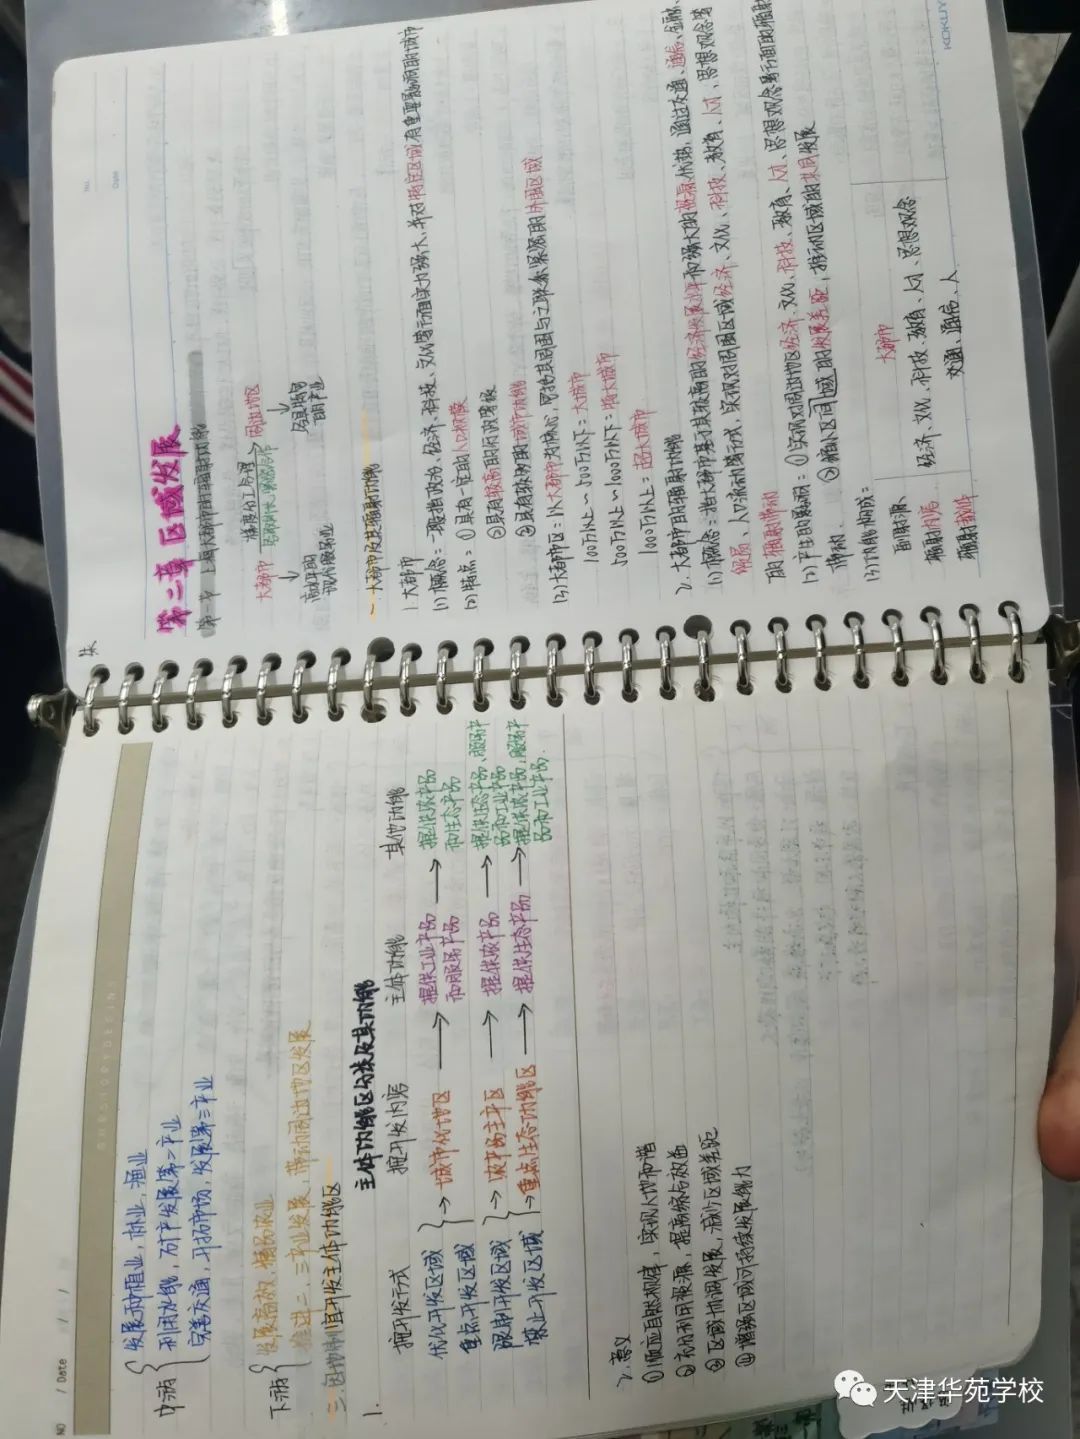 NO
/ Date
中游
发展种植业，林业，渔业
利用水能，矿产发展第二产业
完善交通，开拓市场，发展第三产业
下游
发展高效，精品农业
推进二、三产业发展，带动周边地区发展
三.因地制宜开发主体功能区
1.
主体功能区分类及其功能
按开发方式
按开发内容
主体功能
其他功能
优化开发区域
重点开发区域
→城市化地区
→提供工业产品和服务产品
→提供农产品和生态产品
限制开发区域
→农产品主产区
→提供农产品
→提供生态产品、服务产品和工业产品
禁止开发区域
→重点生态功能区
→提供生态产品
→提供农产品，服务产品和工业产品.
2.意义
①顺应自然规律，实现人地和谐
②充分利用资源，提高综合效益
③区域协调发展，减少区域差距
④增强区域可持续发展能力
No.
Date
第二章 区域发展
大都市
周边地区
↓
↓
高水平的现代服务业
一.大都市及其辐射功能
1.大都市
(1)概念：一般指政治、经济、科技、文化等方面实力强大、并对特定区域有重要影响的城市
(2)特点：①具有一定的人口规模
②具有较高的
③具有较多的城市功能
(3)大都市区：以大都市为核心，同与其周围与之联系紧密的外围区域
100万以上~500万以下：大城市
500万以上~1000万以下：特大城市
1000万以上：超大城市
2.大都市的辐射功能
(1)概念：指大都市基于其较高的经济发展水平和强大的资源优势，通过交通、通信、金融、
贸易、人口流动等方式，实现对周围区域经济、文化、科技、教育、人才、思想观念等
的辐射带动
(2)产生的影响：①实现对周边地区经济、文化、科技、教育、人才、思想观念等方面的辐射
带动.
②缩小区间域的发展差距，推动区域的共同发展
(3)功能构成：
辐射源
大都市
辐射内容
经济、文化、科技、教育、人才、思想观念
辐射媒介
交通、通信、人
KOKUYO
天津华苑学校